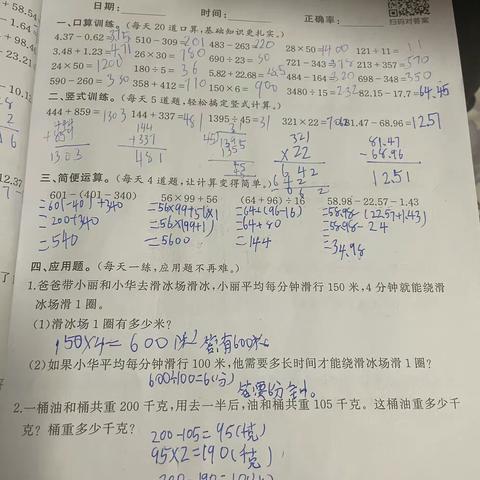 日期: 时间: 正确率: 扫码对答案
一、口算训练。(每天20道口算,基础知识更扎实。)
4.37-0.62= 510-309=201 483-263=220 28×50=1400 121+11=11
3.48+1.23=4.71 26×30=780 690+23=30 721-343=378 213+357=570
24×50=1200 180÷5=36 5.82+22.68= 484-164=320 698-348=350
590-260=330 358+412=110 150×6=900 3480÷15=232 82.15-17.7=64.45
二、竖式训练。(每天5道题,轻松搞定竖式计算。)
444+859=1303 144+337=481 1395÷45=31 321×22=7062 81.47-68.96=1251
444 144 31 321 81.47
+859 +337 45 1395 ×22 -68.96
1303 481 135 642 12.51
45 642
三、简便运算。(每天4道题,让计算变得简单。)
601-(401-340) 56×99+56 (64+96)÷16 58.98-22.57-1.43
=601-401+340 =56×99+56×1 =64+(96-16) =58.98-(22.57+1.43)
=200+340 =56×(99+1) =64+80 =58.98-24
=540 =5600 =144 =34.98
四、应用题。(每天一练,应用题不再难。)
1.爸爸带小丽和小华去滑冰场滑冰,小丽平均每分钟滑行150米,4分钟就能绕滑
冰场滑1圈。
(1)滑冰场1圈有多少米?
150×4=600(米) 答:有600米
(2)如果小华平均每分钟滑行100米,他需要多长时间才能绕滑冰场滑1圈?
600÷100=6(分) 答:要6分钟。
2.一桶油和桶共重200千克,用去一半后,油和桶共重105千克。这桶油重多少千
克?桶重多少千克?
200-105=95(千克)
95×2=190(千克)
200-190=10(千克)